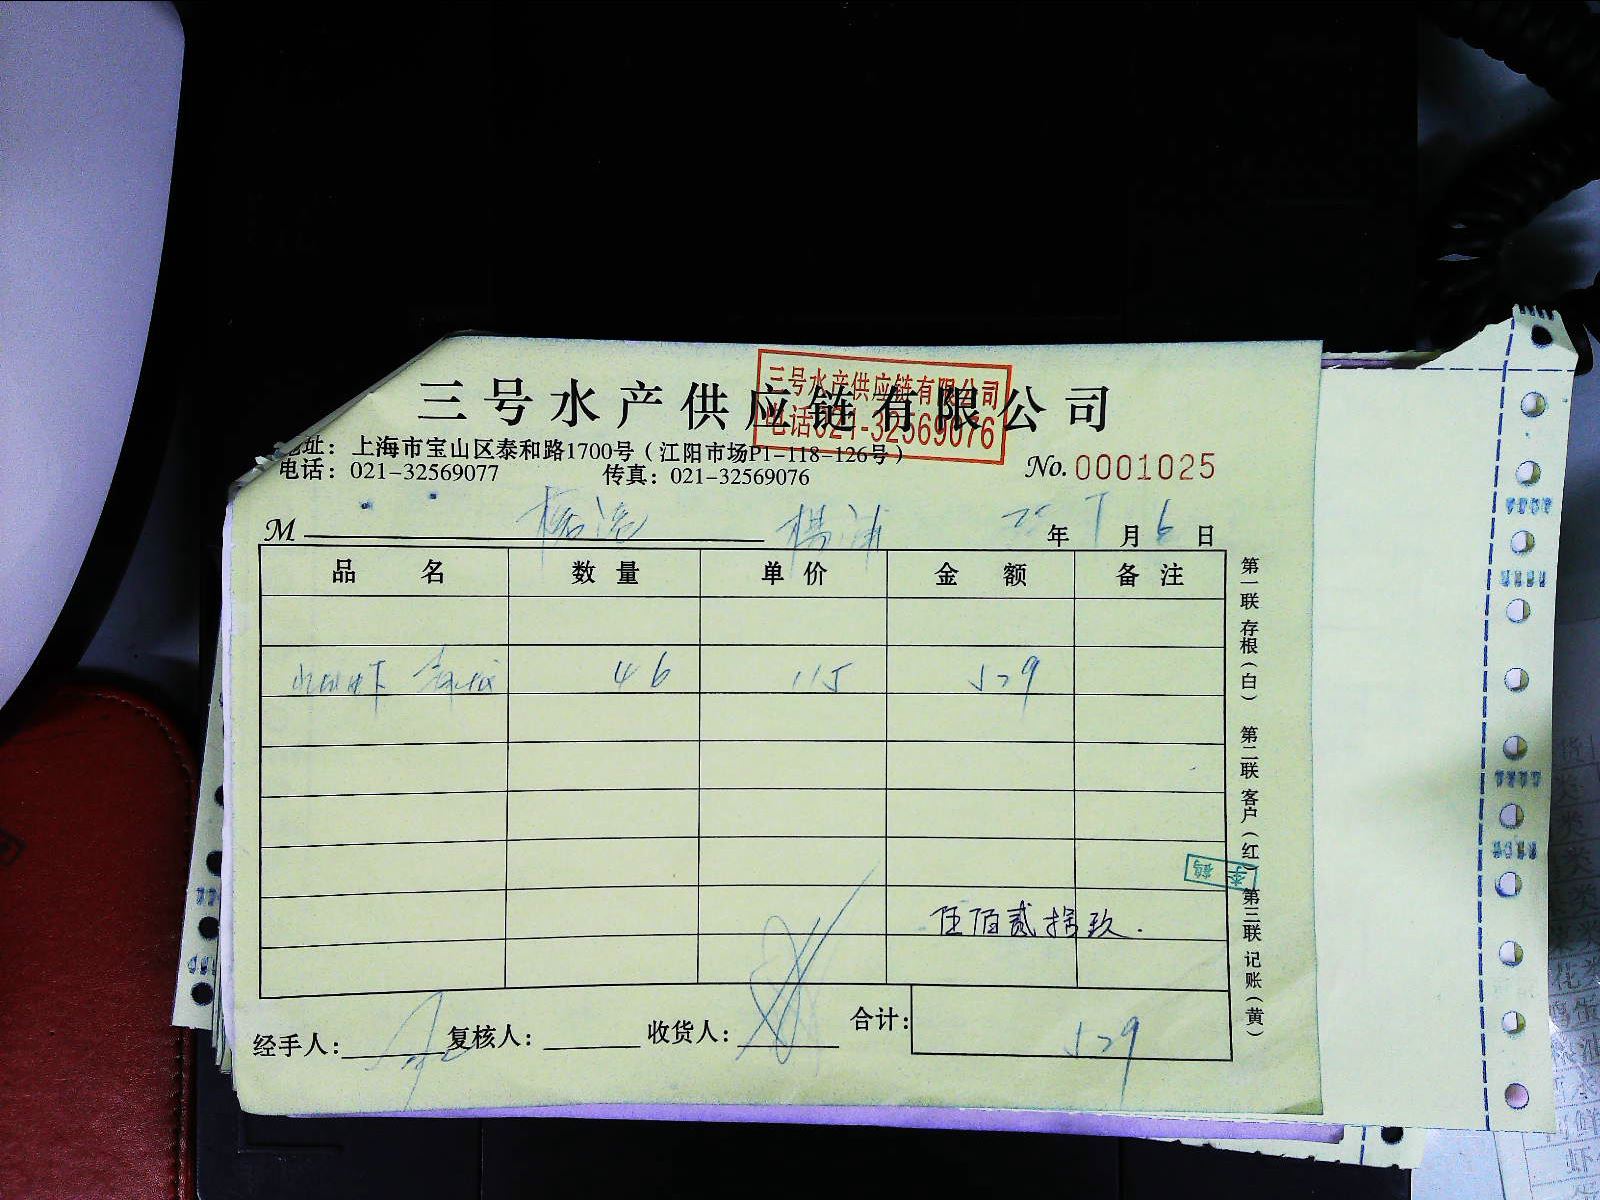 三号水产供应链有限公司
三号水产供应链有限公司
电话021-32569076
地址：上海市宝山区泰和路1700号（江阳市场P1-118-126号）
电话：021-32569077 传真：021-32569076
No. 0001025
M 杨浦 年 月 6 日
品名 数量 单价 金额 备注
46 115 529
伍佰贰拾玖.
经手人: 复核人: 收货人: 合计: 529
第一联 存根（白） 第二联 客户（红） 第三联 记账（黄）
李鹤